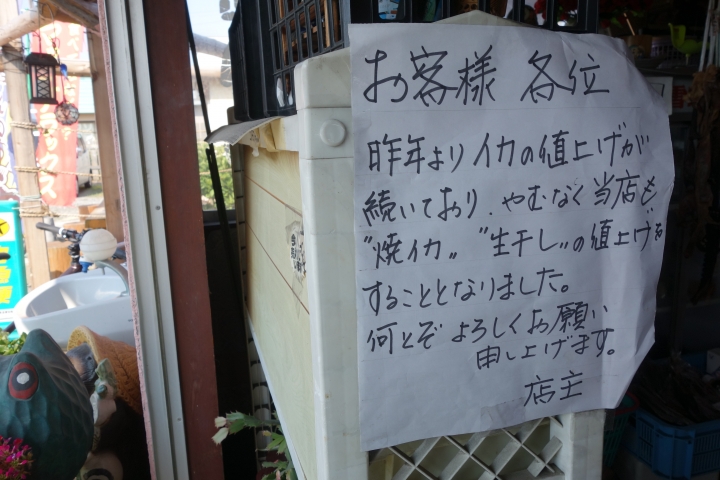 お客様 各位
昨年よりイカの値上げが
続いており、やむなく当店も
"焼イカ" "生干し"の値上げを
することとなりました。
何とぞよろしくお願い
申し上げます。
店主